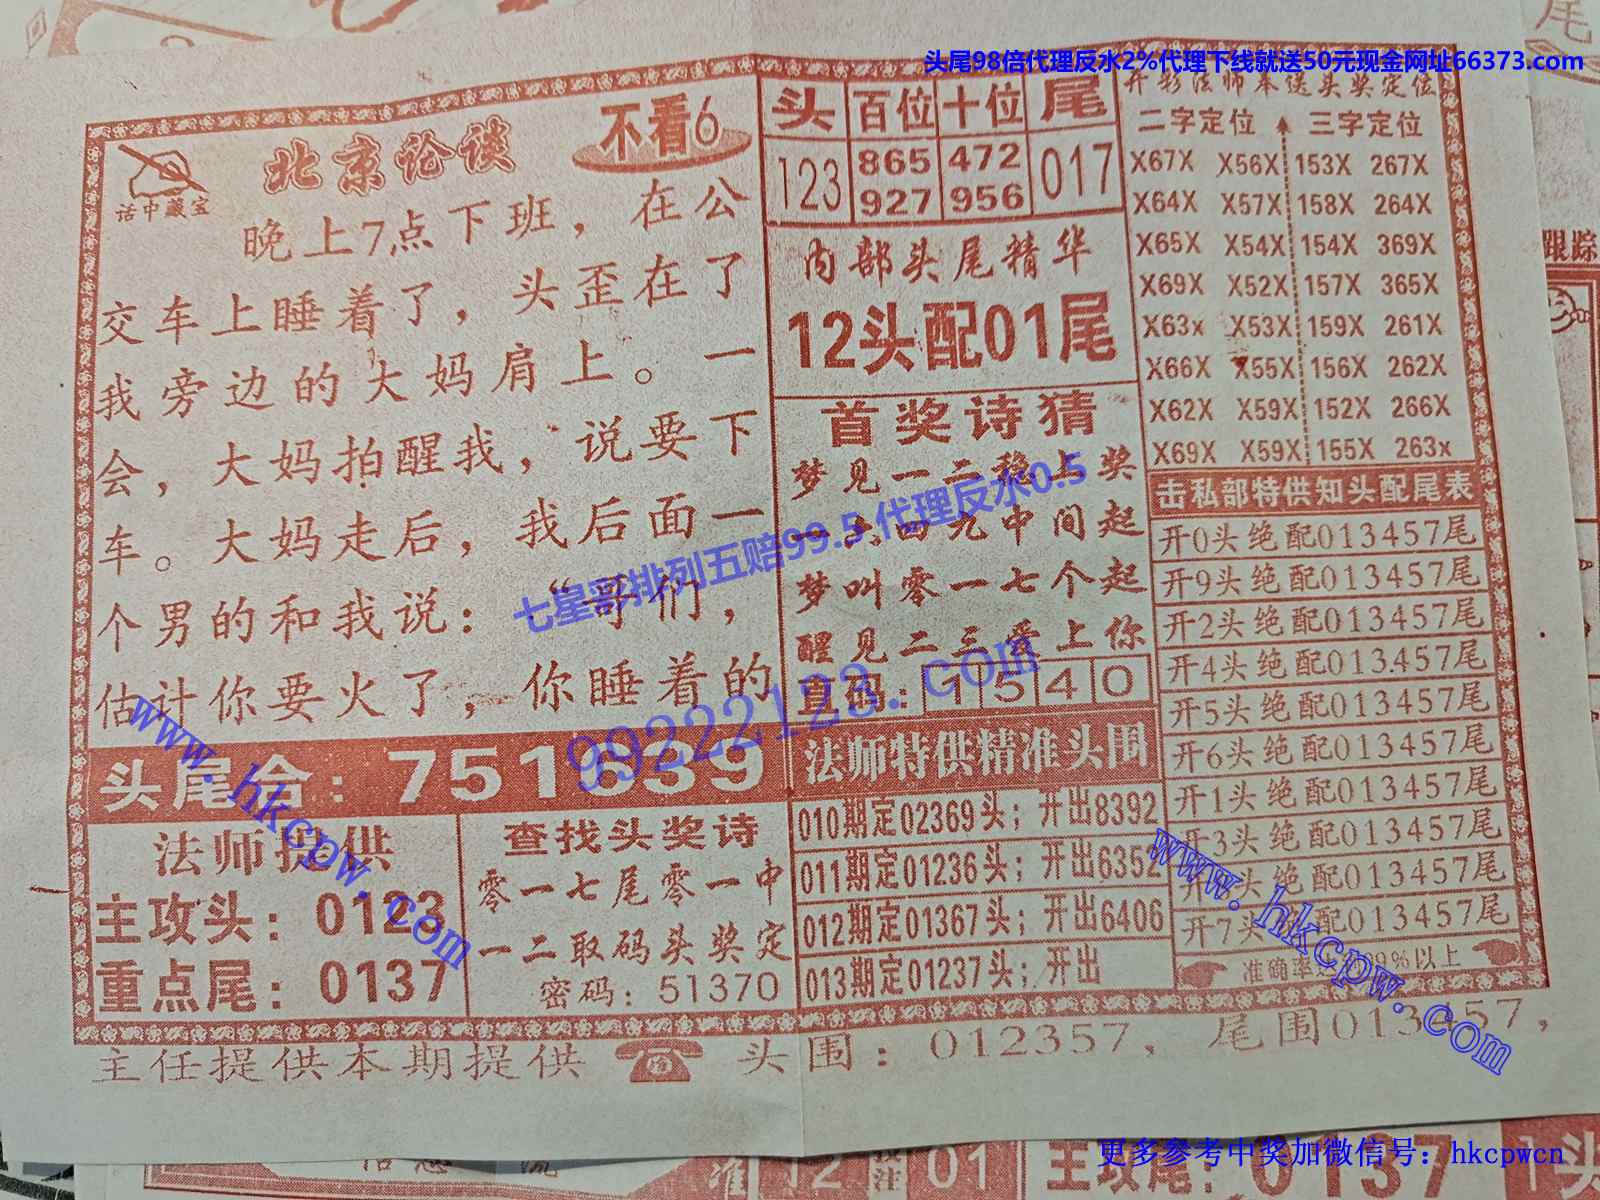 头尾98倍代理反水2%代理下线就送50元现金网址66373.com
北京论谈
不看6
话中藏宝
晚上7点下班，在公
交车上睡着了，头歪在了
我旁边的大妈肩上。一
会，大妈拍醒我，说要下
车。大妈走后，我后面一
个男的和我说：“哥们，
估计你要火了，你睡着的
头尾合：751639
法师提供
主攻头：0123
重点尾：0137
查找头奖诗
零一七尾零一中
一二取码头奖定
密码：51370
头 百位 十位 尾
123 865 472 017
927 956
内部头尾精华
12头配01尾
首奖诗猜
梦见一二稳上奖
四九中间起
梦叫零一七个起
醒见二三爱上你
直码：1540
法师特供精准头围
010期定02369头；开出8392
011期定01236头；开出6352
012期定01367头；开出6406
013期定01237头；开出
开彩法师本送头奖定位
二字定位 三字定位
X67X X56X 153X 267X
X64X X57X 158X 264X
X65X X54X 154X 369X
X69X X52X 157X 365X
X63x X53X 159X 261X
X66X X55X 156X 262X
X62X X59X 152X 266X
X69X X59X 155X 263x
击私部特供知头配尾表
开0头绝配013457尾
开9头绝配013457尾
开2头绝配013457尾
开4头绝配013457尾
开5头绝配013457尾
开6头绝配013457尾
开1头绝配013457尾
开3头绝配013457尾
开 头绝配013457尾
开7头绝配013457尾
准确率达到99%以上
主任提供本期提供 头围：012357，尾围013457，
七星哥排列五赔99.5代理反水0.5
99222123.com
www.hkcpw.com
www.hkcpw.com
跟踪
尾
12
01
主攻尾：0137
1头
更多参考中奖加微信号：hkcpwcn